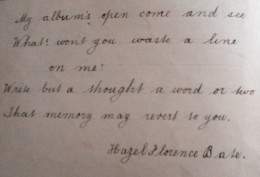 My album's open come and see
What! wont you waste a line
on me?
Write but a thought a word or two
That memory may revert to you.
Hazel Florence Bate.